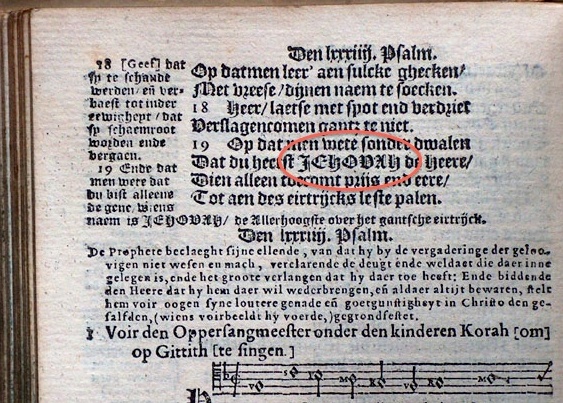 Den lxxxiij. Psalm.
18 [Geef] dat
sy te schande
werden/ en̄ ver-
baest tot inder
eewigheyt/ dat
sy schaemroot
worden ende
vergaen.
19 Ende dat
men wete dat
du bist alleene
de gene, wiens
naem is JEHOVAH/ de Allerhoogste over het gantsche eirtrijck.
Op datmen leer' aen sulcke ghecken/
Met vreese/ dijnen naem te soecken.
18 Heer/ laetse met spot end verdriet
Verslagen comen gantz te niet.
19 Op dat men wete sonder dwalen
Dat du heetst JEHOVAH de Heere/
Dien alleen toecomt prijs end eere/
Tot aen des eirtrijcks leste palen.
Den lxxxiiij. Psalm.
De Prophete beclaeght sijne ellende, van dat hy by de vergaderinge der geloo-
vigen niet wesen en mach, verclarende de deugt ende weldaet die daer inne
gelegen is, ende het groote verlangen dat hy daer toe heeft: Ende biddende
den Heere dat hy hem daer wil wederbrengen, en̄ aldaer altijt bewaren, stelt
hem voir oogen syne loutere genade en̄ goetgunstigheyt in Christo den ge-
salfden, (wiens voirbeeldt hy voerde,) gegrondfestet.
1 Voir den Oppersangmeester onder den kinderen Korah [om]
op Gittith [te singen.]